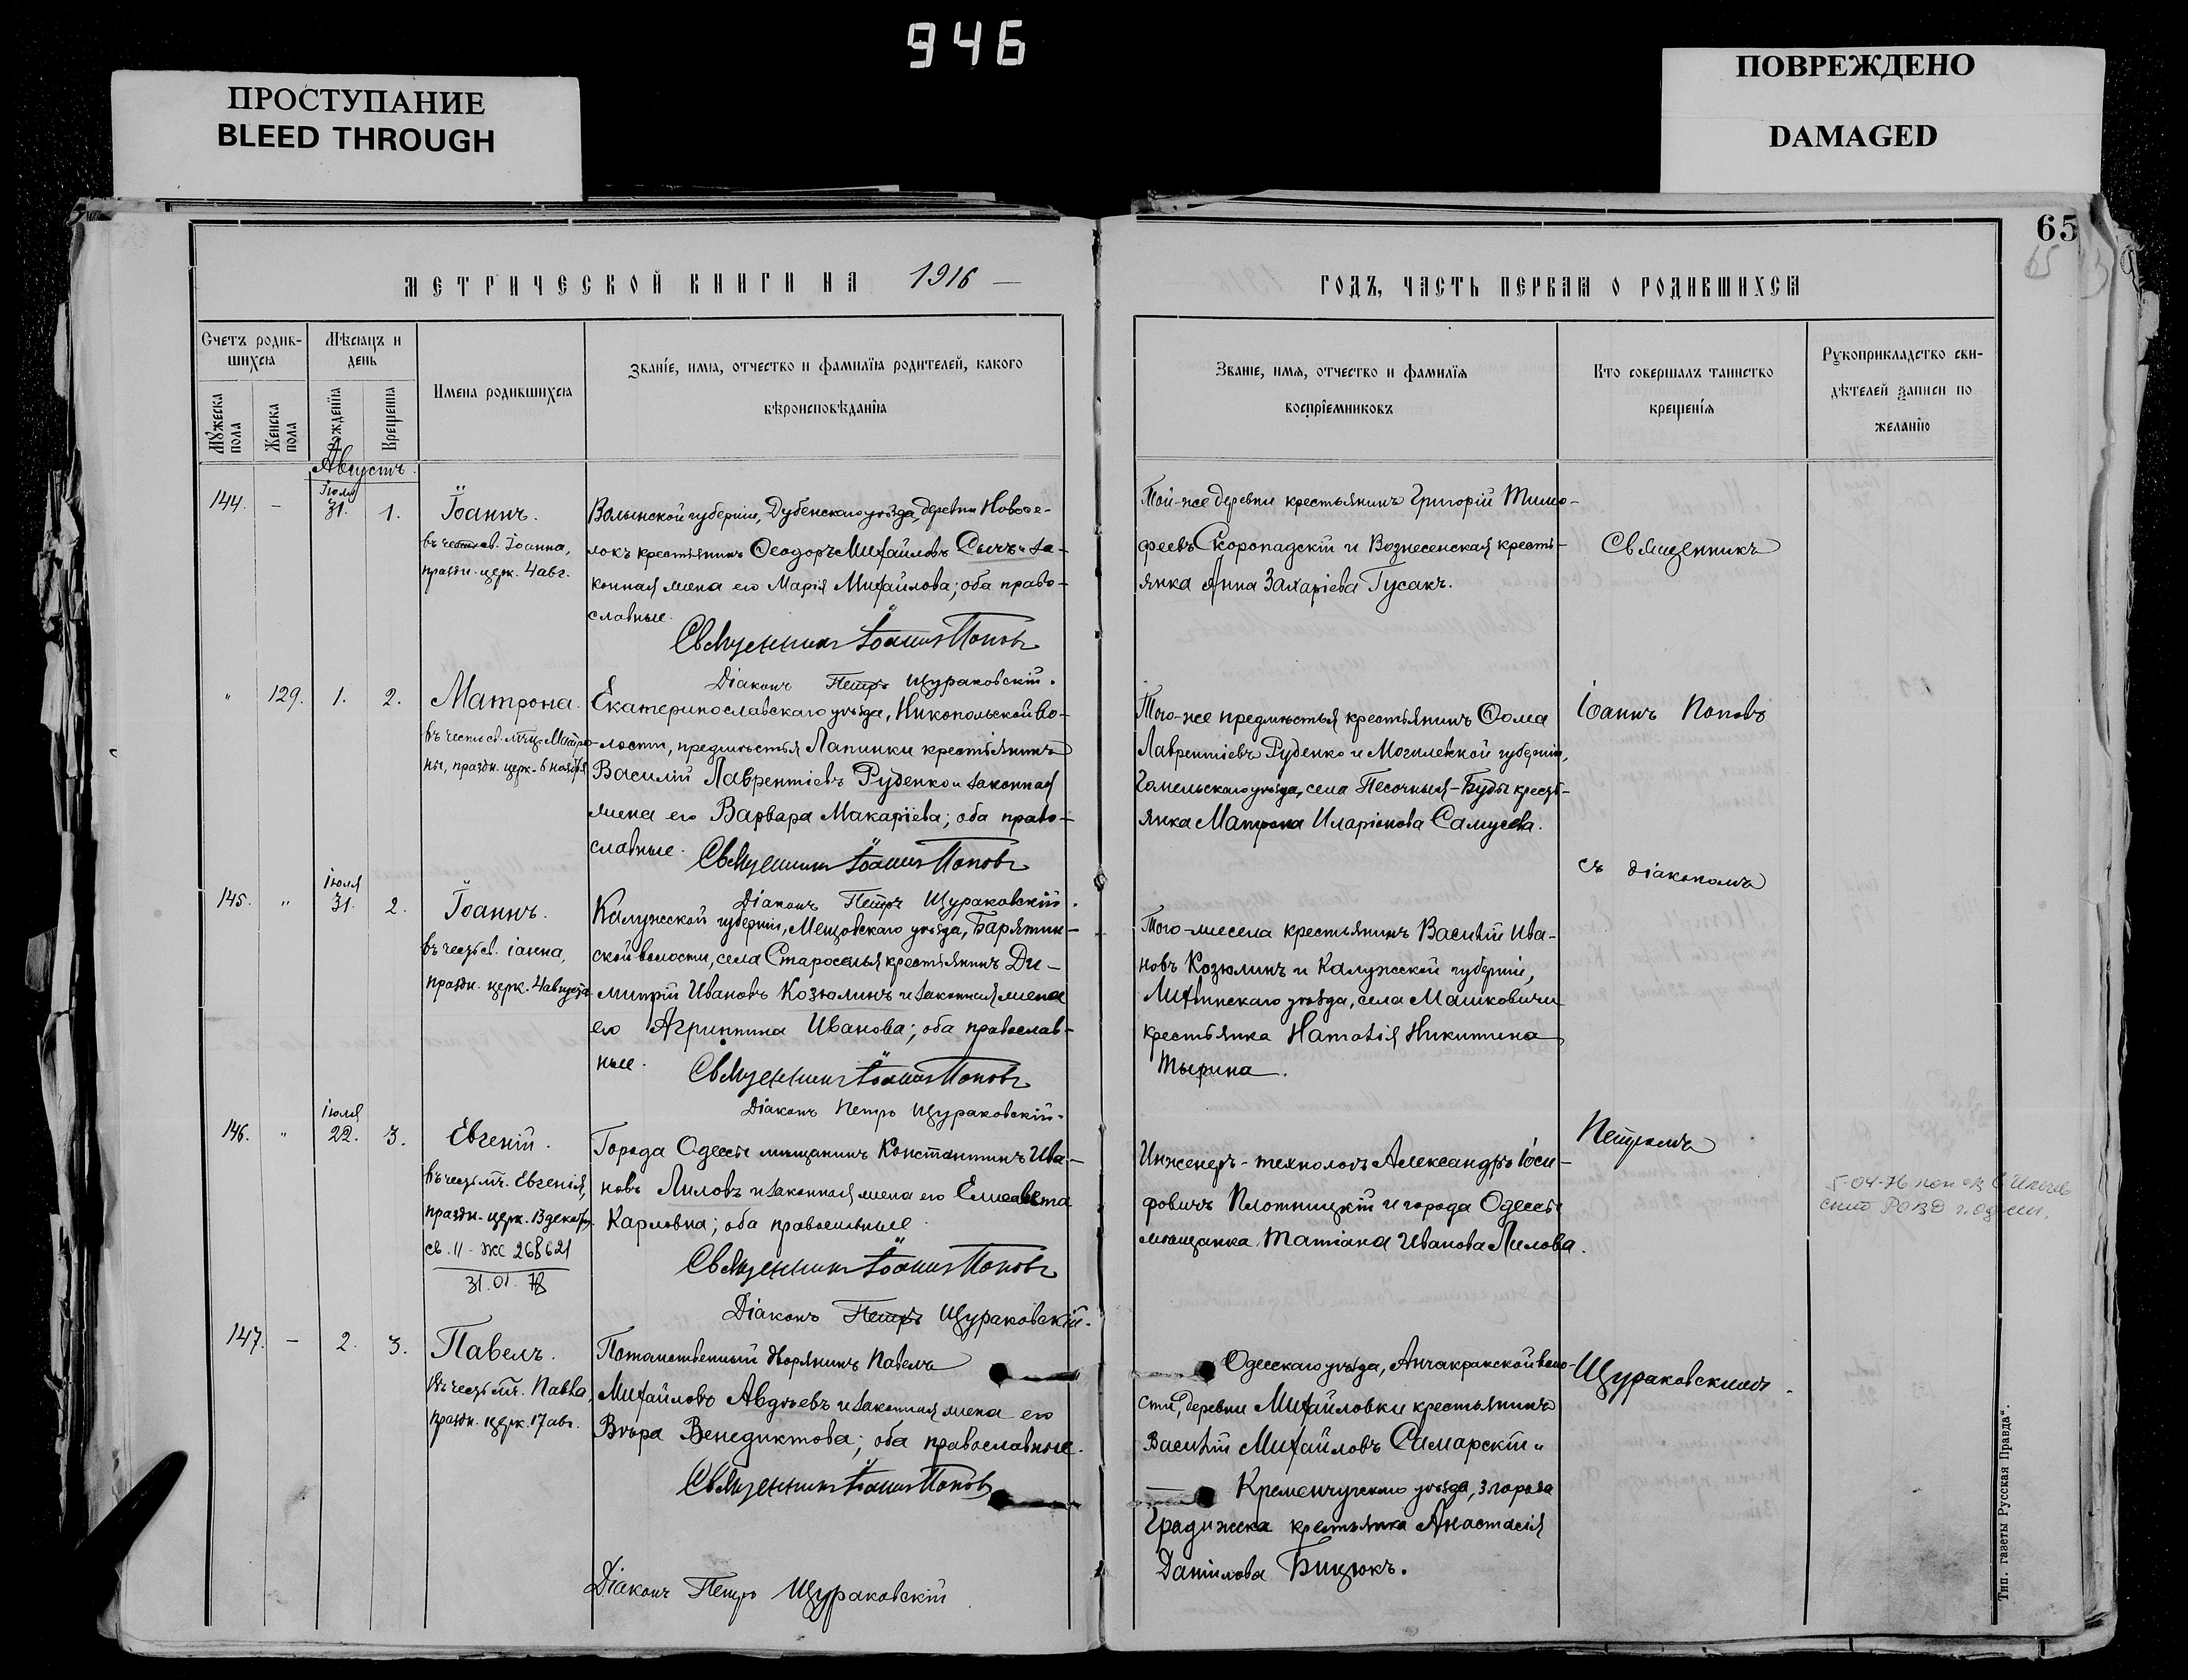 946
ПРОСТУПАНИЕ
BLEED THROUGH
ПОВРЕЖДЕНО
DAMAGED
65
65
МЕТРИЧЕСКОЙ КНИГИ НА 1916 —
ГОДЪ, ЧАСТЬ ПЕРВАЯ О РОДИВШИХСЯ
Счетъ родив-
шихся
Мужеска
пола
Женска
пола
Мѣсяцъ и
день
Рожденія
Крещенія
Имена родившихся
Званіе, имя, отчество и фамилія родителей, какого
вѣроисповѣданія
Званіе, имя, отчество и фамилія
воспріемниковъ
Кто совершалъ таинство
крещенія
Рукоприкладство сви-
дѣтелей записи по
желанію
Августъ
144. – Іюля
31. 1. Іоаннъ.
въ честь св. Іоанна,
праздн. церк. 4 авг.
Волынской губерніи, Дубенскаго уѣзда, деревни Новосе-
локъ крестьянинъ Ѳеодоръ Михайловъ Сычъ и за-
конная жена его Марія Михайлова; оба право-
славные.
Священникъ Іоаннъ Поповъ
Діаконъ Петръ Щураковскій.
Той-же деревни крестьянинъ Григорій Тимо-
феевъ Скоропадскій и Вознесенская кресть-
янка Анна Захаріева Гусакъ.
Священникъ
" 129. 1. 2. Матрона.
въ честь св. мчц. Матро-
ны, праздн. церк. 6 ноября
Екатеринославскаго уѣзда, Никопольской во-
лости, предмѣстья Лапинки крестьянинъ
Василій Лаврентіевъ Руденко и законная
жена его Варвара Макаріева; оба право-
славные.
Священникъ Іоаннъ Поповъ
Діаконъ Петръ Щураковскій.
Того-же предмѣстья крестьянинъ Ѳома
Лаврентіевъ Руденко и Могилевской губерніи,
Гомельскаго уѣзда, села Песочныя-Буды кресть-
янка Матрона Иларіонова Самусева.
Іоаннъ Поповъ
съ діакономъ
145. " Іюля
31. 2. Іоаннъ.
въ честь св. Іоанна,
праздн. церк. 4 августа
Калужской губерніи, Мещовскаго уѣзда, Барятин-
ской волости, села Староселья крестьянинъ Ди-
митрій Ивановъ Козюлинъ и законная жена
его Агриппина Иванова; оба православ-
ные.
Священникъ Іоаннъ Поповъ
Діаконъ Петръ Щураковскій.
Того-же села крестьянинъ Василій Ива-
новъ Козюлинъ и Калужской губерніи,
Лихвинскаго уѣзда, села Машковичи
крестьянка Наталія Никитина
Тырина.
146. " Іюля
22. 3. Евгеній.
въ честь мч. Евгенія,
праздн. церк. 13 декабря.
св. II-ЖС 268621
31.01.78
Города Одессы мѣщанинъ Константинъ Ива-
новъ Лиловъ и законная жена его Елисавета
Карловна; оба православные.
Священникъ Іоаннъ Поповъ
Діаконъ Петръ Щураковскій.
Инженеръ-технологъ Александръ Іоси-
фовичъ Плотницкій и города Одессы
мѣщанка Татіана Иванова Лилова.
Петромъ
5-04-76
РОВД
147. – 2. 3. Павелъ.
въ честь мч. Павла,
праздн. церк. 17 авг.
Потомственный дворянинъ Павелъ
Михайловъ Авдѣевъ и законная жена его
Вѣра Венедиктова; оба православные.
Священникъ Іоаннъ Поповъ
Діаконъ Петръ Щураковскій
Одесскаго уѣзда, Анчакракской воло-
сти, деревни Михайловки крестьянинъ
Василій Михайловъ Самарскій и
Кременчугскаго уѣзда, города
Градижска крестьянка Анастасія
Даніилова Бицюкъ.
Щураковскимъ.
Тип. газеты „Русская Правда“.